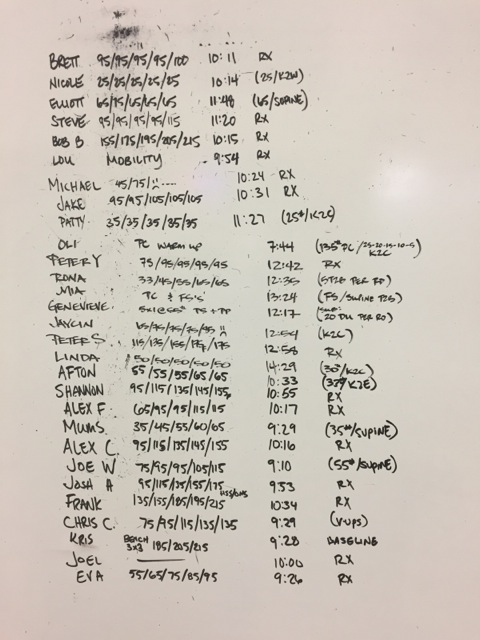 BRETT 95/95/95/95/100 10:11 RX
NICOLE 25/25/25/25/25 10:14 (25/K2W)
ELLIOTT 65/75/65/65/65 11:48 (65/SUPINE)
STEVE 95/95/95/95/115 11:20 RX
BOB B 155/175/195/205/215 10:15 RX
LOU MOBILITY 9:54 RX
MICHAEL 45/75/ 10:24 RX
JAKE 95/95/105/105/105 10:31 RX
PATTY 35/35/35/35/35 11:27 (25#/K2C)
OLI PC WARM UP 7:44 (135# PC/25-20-15-10-5 K2C)
PETER Y 75/95/95/95/95 12:42 RX
RONA 33/45/55/65/65 12:35 PER RD)
MIA PC & FS'S 13:24
GENEVIEVE 12:17 PER RD)
JAYLIN 65/75/75/75/95 12:54 (K2C)
PETER S 115/135/155/175/175 12:58 RX
LINDA 50/50/50/50/50 14:29 (30#/K2C)
AFTON 55/55/55/65/65 10:33
SHANNON 95/115/135/145/155 10:55 RX
ALEX F. 65/95/95/115/115 10:17 RX
MUMS 35/45/55/60/65 9:29 (35#/SUPINE)
ALEX C. 95/115/135/145/155 10:16 RX
JOE W 75/95/95/105/115 9:10 (55#/SUPINE)
JOSH A 95/115/135/155/175 9:53 RX
FRANK 135/155/185/195/215 10:34 RX
CHRIS C. 75/95/115/135/135 9:29 (V-UPS)
KRIS BENCH 3x3 185/205/215 9:28 BASELINE
JOEL 10:00 RX
EVA 55/65/75/85/95 9:26 RX